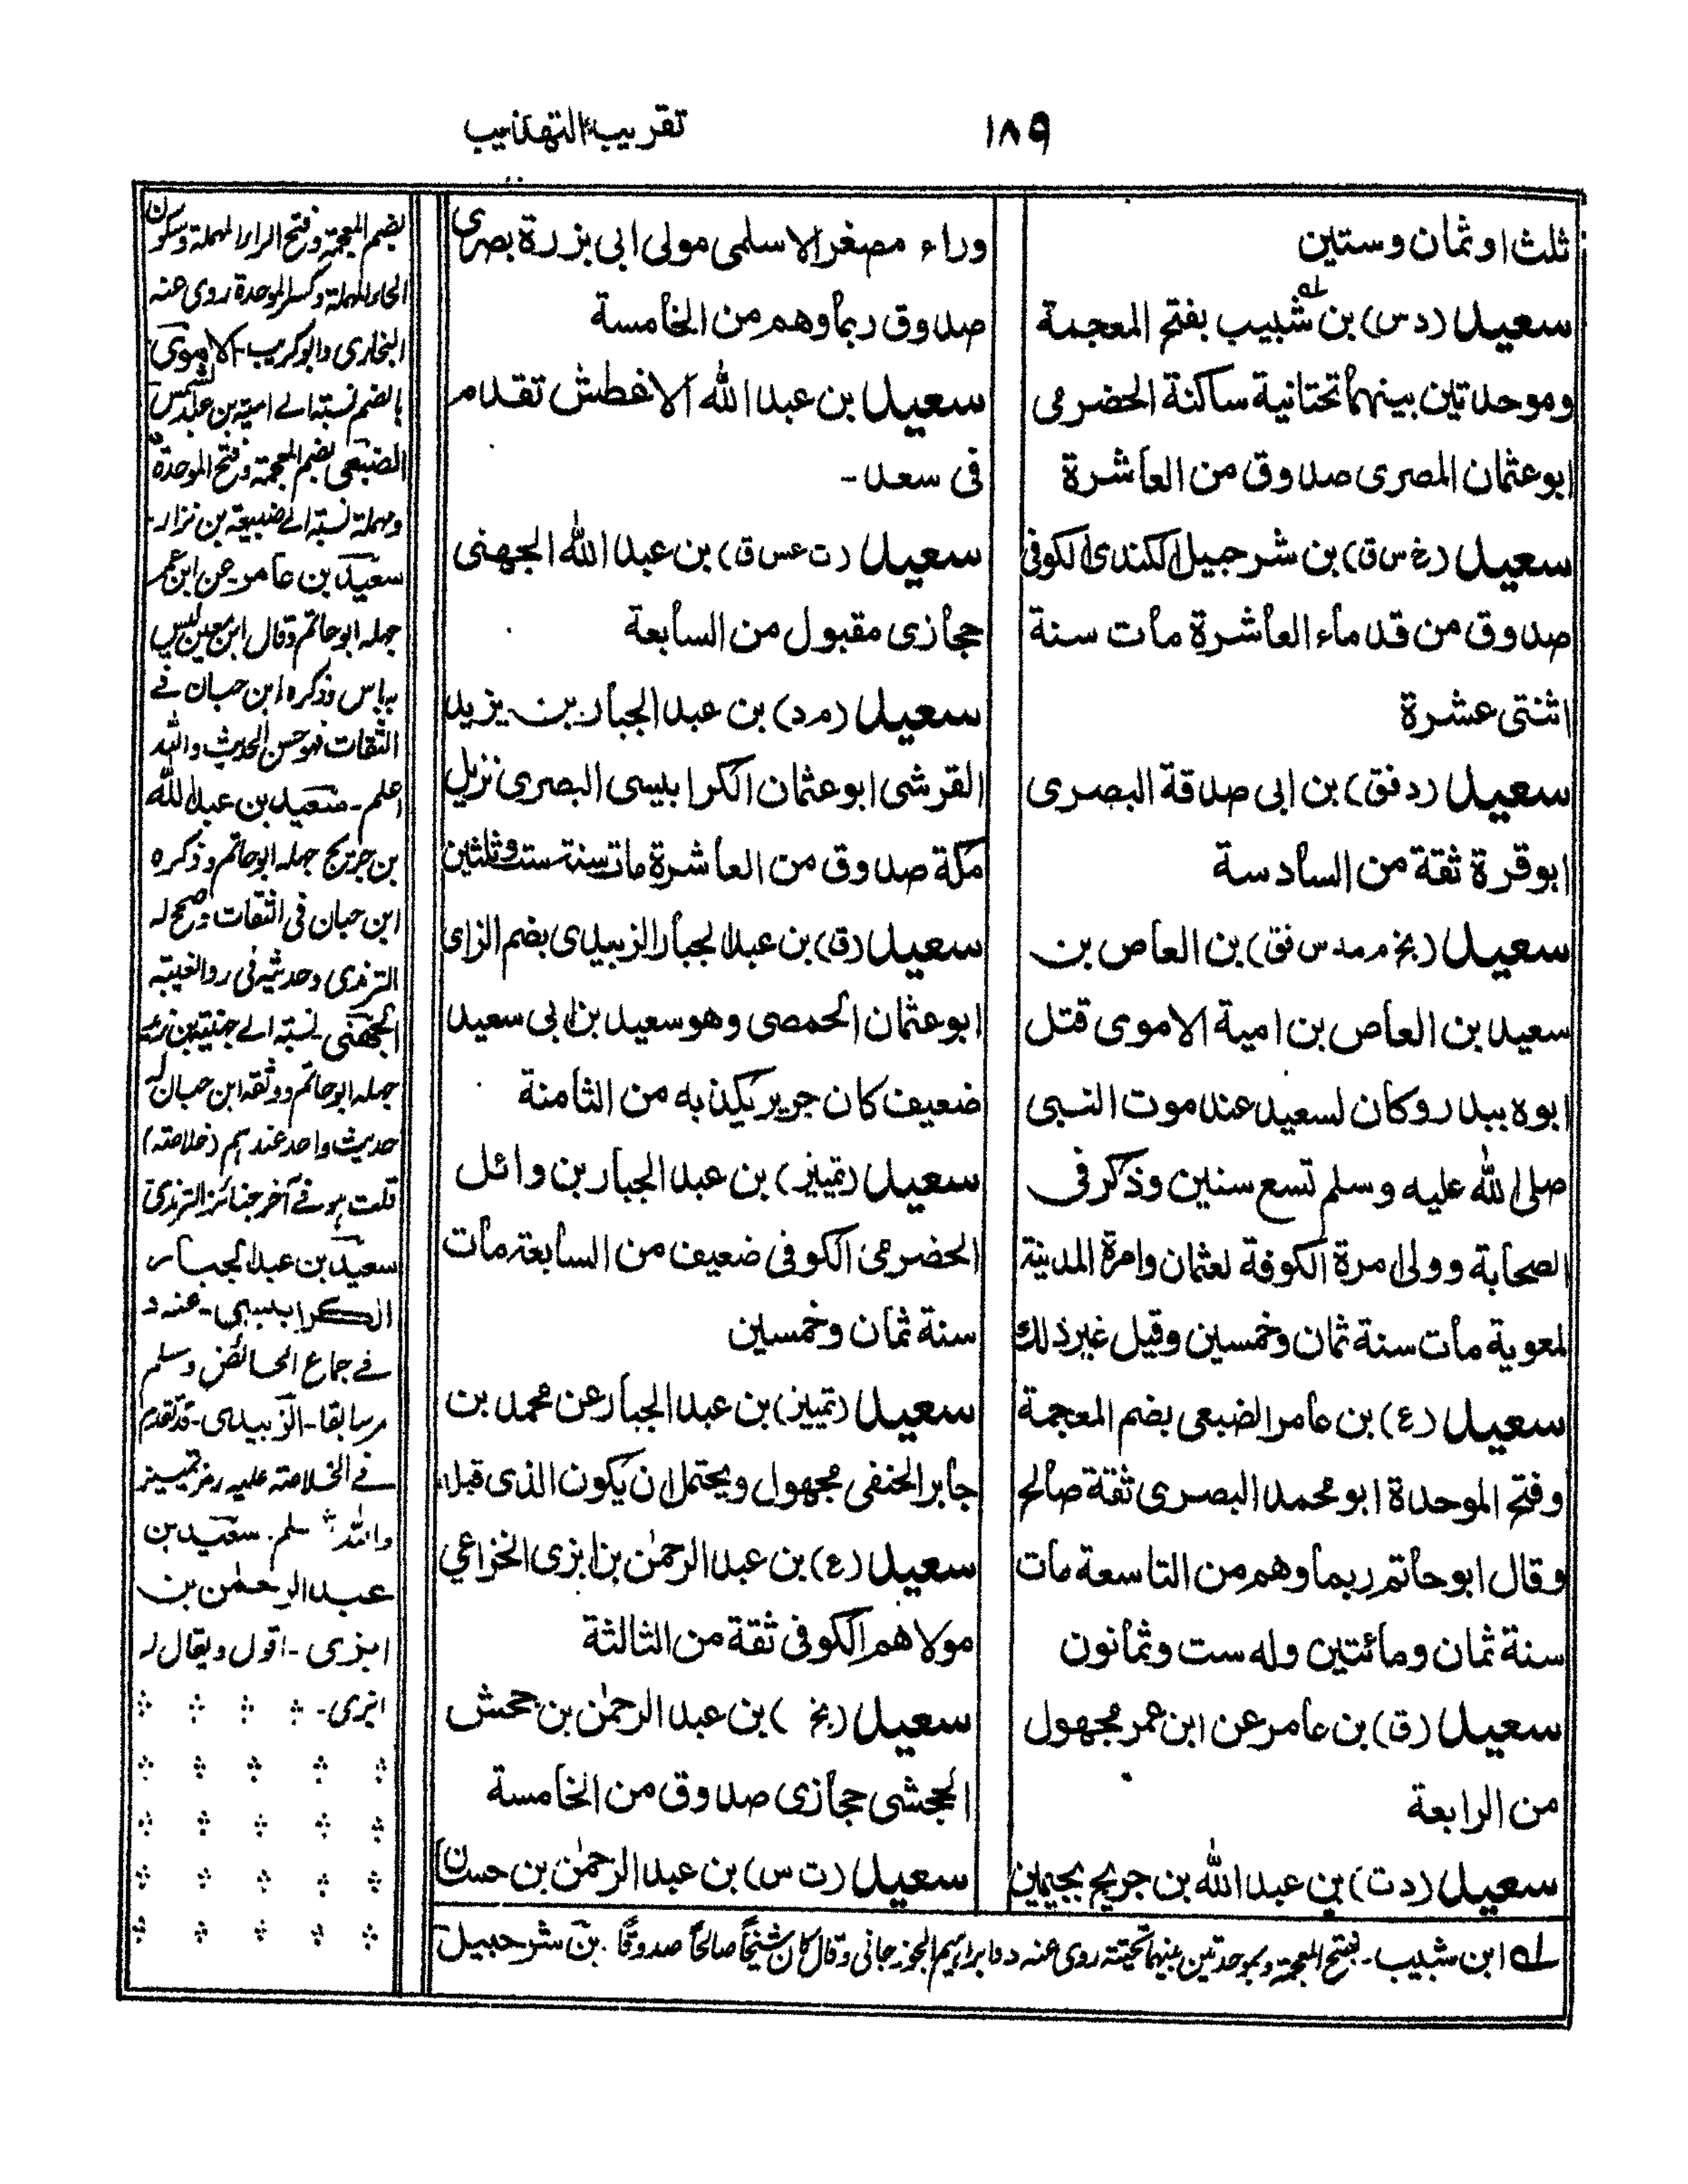 ١٨٩
تقريب التهذيب
ثلث اوثمان وستين
سعيد (د س) بن شبيب بفتح المعجمة
وموحدتين بينهما تحتانية ساكنة الحضرمى
ابوعثمان المصرى صدوق من العاشرة
سعيد (خ س ق) بن شرحبيل الكندى الكوفى
صدوق من قدماء العاشرة مات سنة
اثنتى عشرة
سعيد (د فق) بن ابى صدقة البصرى
ابوقرة ثقة من السادسة
سعيد (بخ م مد س فق) بن العاص بن
سعيد بن العاص بن امية الاموى قتل
ابوه ببدر وكان لسعيد عند موت النبى
صلى الله عليه وسلم تسع سنين وذكر فى
الصحابة وولى امرة الكوفة لعثمان وامرة المدينة
لمعوية مات سنة ثمان وخمسين وقيل غير ذلك
سعيد (ع) بن عامر الضبعى بضم المعجمة
وفتح الموحدة ابو محمد البصرى ثقة صالح
وقال ابوحاتم ربما وهم من التاسعة مات
سنة ثمان ومائتين وله ست وثمانون
سعيد (ق) بن عامر عن ابن عمر مجهول
من الرابعة
سعيد (د ت) بن عبد الله بن جريج بجيمين
وراء مصغر الاسلمى مولى ابى بزرة بصرى
صدوق ربما وهم من الخامسة
سعيد بن عبد الله الافطش تقدم
فى سعد -
سعيد (ت عس ق) بن عبد الله الجهنى
حجازى مقبول من السابعة
سعيد (م د) بن عبد الجبار بن يزيد
القرشى ابوعثمان الكرابيسى البصرى نزيل
مكة صدوق من العاشرة مات سنة ست وثلثين
سعيد (ق) بن عبد الجبار الزبيدى بضم الزاى
ابوعثمان الحمصى وهو سعيد بن ابى سعيد
ضعيف كان جرير يكذبه من الثامنة
سعيد (تمييز) بن عبد الجبار بن وائل
الحضرمى الكوفى ضعيف من السابعة مات
سنة ثمان وخمسين
سعيد (تمييز) بن عبد الجبار عن محمد بن
جابر الحنفى مجهول ويحتمل ان يكون الذى قبله
سعيد (ع) بن عبد الرحمٰن بن ابزى الخزاعي
مولاهم الكوفى ثقة من الثالثة
سعيد (بخ ) بن عبد الرحمٰن بن جحش
الجحشى حجازى صدوق من الخامسة
سعيد (ت س) بن عبد الرحمٰن بن حسان
لے ابن شبيب - بفتح المعجمة وبموحدتين بينهما تحتية روى عنه د وابراهيم الجوزجانى وقال كان شيخًا صالحًا صدوقًا . بن شرحبيل
بضم المعجمة وفتح الراء المهملة وسكون
الحاء المهملة وكسر الموحدة روى عنه
البخارى وابوكريب - الاموى
بالضم نسبة الے امية بن عبد شمس
الضبعى بضم المعجمة وفتح الموحدة
ومهملة نسبة الے ضبيعة بن نزار -
سعيد بن عامر عن ابن عمر
جهله ابوحاتم وقال ابن معين ليس
به باس وذكره ابن حبان فے
الثقات فهو حسن الحديث والله
اعلم - سعيد بن عبد الله
بن جريج جهله ابوحاتم وذكره
ابن حبان فى الثقات وصحح له
الترمذى وحديثه فى رد الغيبة
الجهنى نسبة الے جهينة بن زيد
جهله ابوحاتم ووثقه ابن حبان له
حديث واحد عندهم (خلاصة)
قلت هو فے آخر جنائز الترمذى
سعيد بن عبد الجبار
الكرابيسى - عنه د
فے جماع الحائض وسلم
مر سابقا - الزبيدى - قد تقدم
فے الخلاصة عليه رمز تمييز
والله اعلم . سعيد بن
عبد الرحمٰن بن
ابزى - اقول ويقال له
ابزى -